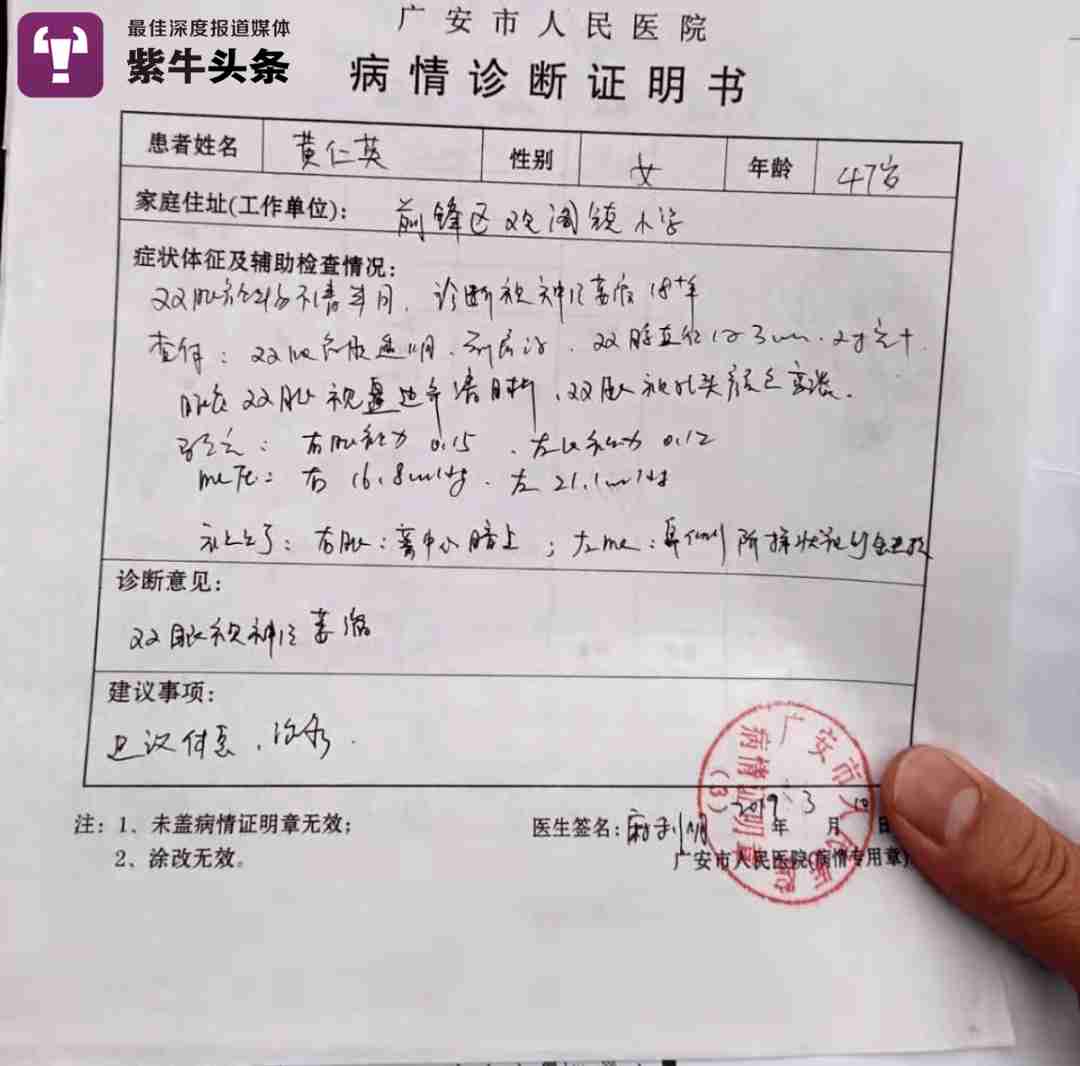 最佳深度报道媒体
紫牛头条
广安市人民医院
病情诊断证明书
患者姓名 黄仁英 性别 女 年龄 47岁
家庭住址(工作单位): 前锋区观阁镇小学
症状体征及辅助检查情况:
双眼视物不清 诊断视神经萎缩18+年
查体: 双眼角膜透明 双瞳直径约3mm
双眼视盘边界清晰, 双眼视乳头颜色
右眼视力 0.15 左眼视力 0.12
眼压: 右 16.8mmHg 左 21.1mmHg
视野: 右眼: 离中心暗点; 左眼: 鼻侧阶梯状
诊断意见:
双眼视神经萎缩
建议事项:
建议休息, 治疗.
注: 1、未盖病情证明章无效;
2、涂改无效。
医生签名: 2019年3月10日
广安市人民医院(病情专用章)
广安市人民医院
病情证明章
(3)